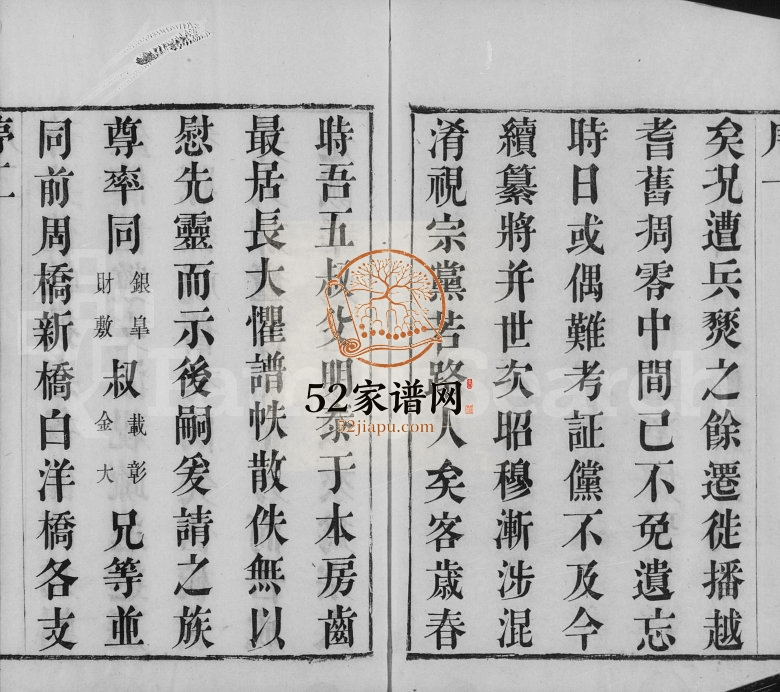 矣況遭兵燹之餘遷徙播越
耆舊凋零中間已不免遺忘
時日或偶難考証儻不及今
續纂將并世次昭穆漸涉混
淆視宗黨若路人矣客歲春
時吾五叔父明泰于本房齒
最居長大懼譜帙散佚無以
慰先靈而示後嗣爰請之族
尊率同銀皐財敷叔載彰金大兄等並
同前周橋新橋白洋橋各支
52家谱网
52jiapu.com